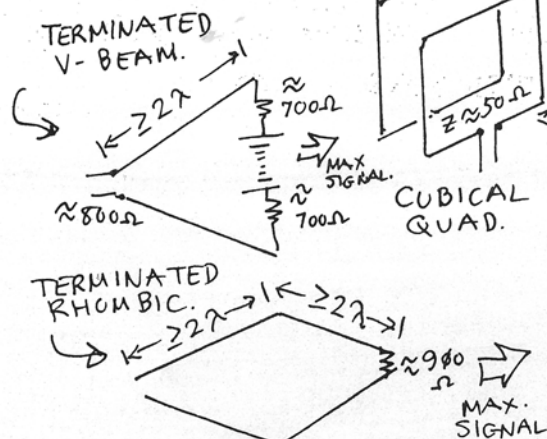 TERMINATED
V-BEAM.
≥2λ
≈
700Ω
MAX
SIGNAL.
≈
700Ω
≈800Ω
Z≈50Ω
CUBICAL
QUAD.
TERMINATED
RHOMBIC.
≥2λ
≥2λ
≈900
Ω
MAX.
SIGNAL